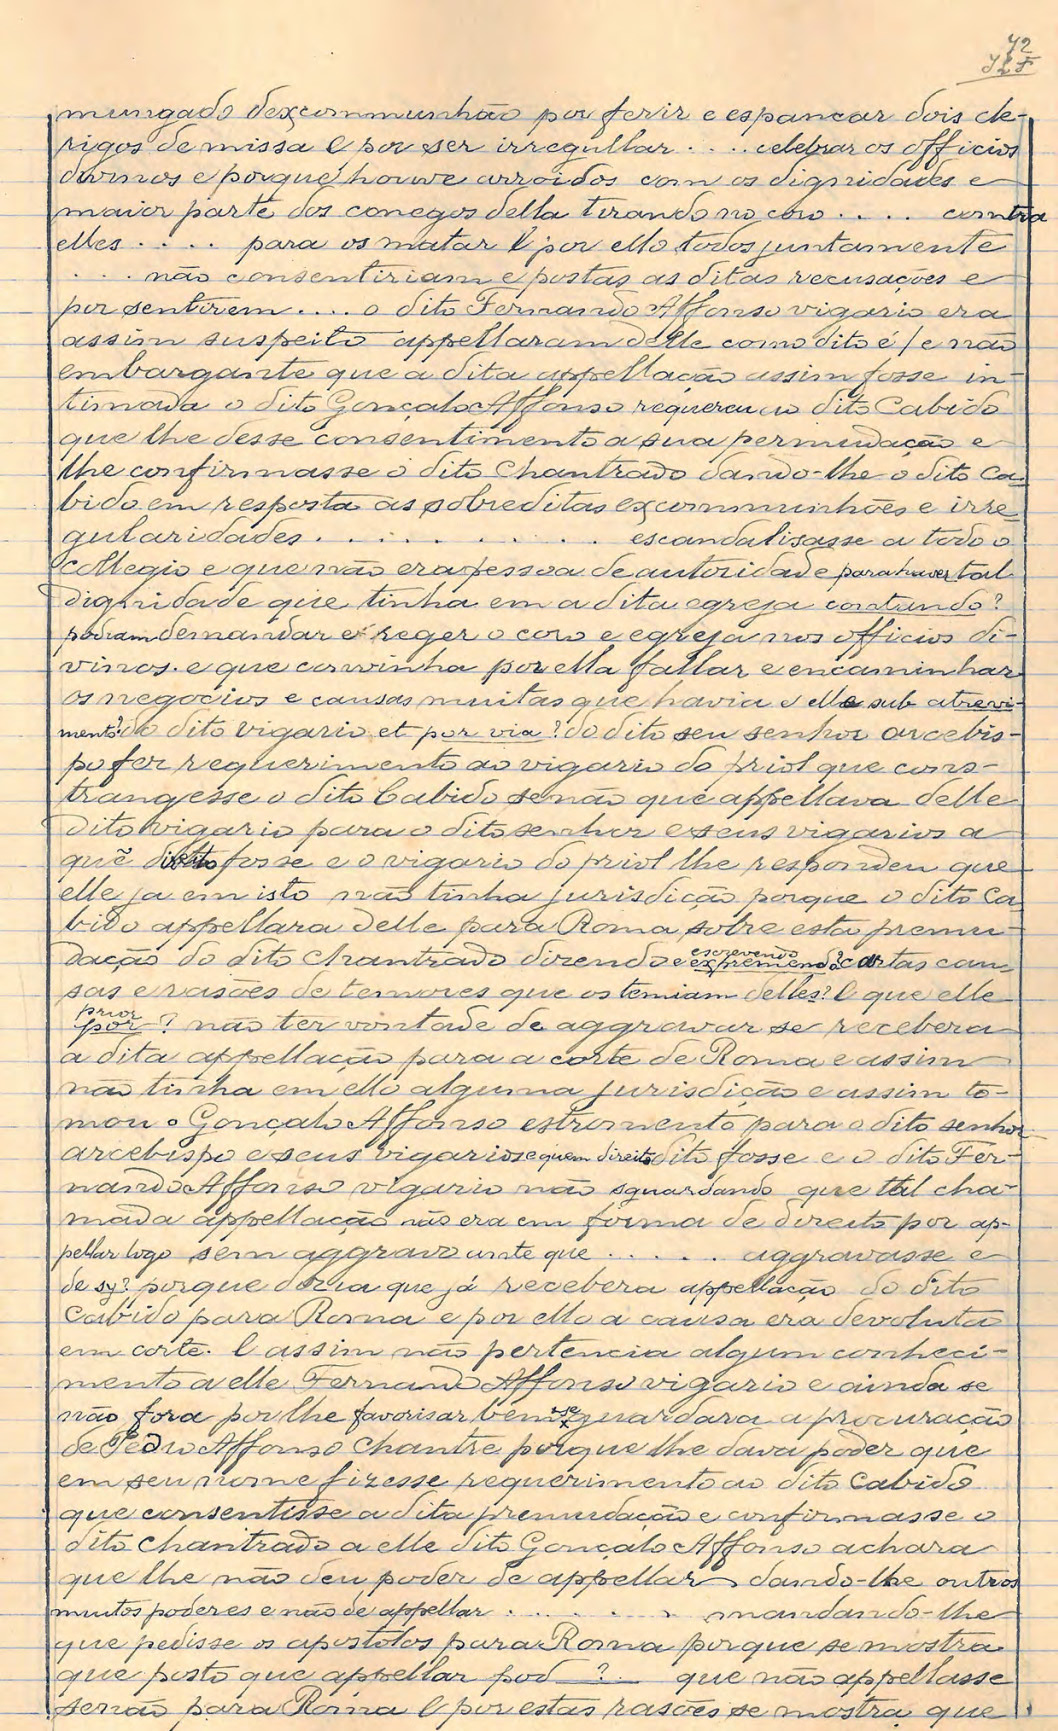 72
72 F
mungado d'excommunhão por ferir e espancar dois cle-
rigos de missa e por ser irregullar .... celebrar os officios
divinos e porque houve arroidos com os dignidades e
maior parte dos conegos della tirando no coro .... contra
elles .... para os matar e por ello todos juntamente
.... não consentiriam e postas as ditas recusações e
por sentirem .... o dito Fernando Affonso vigario era
assim suspeito appellaram delle como dito é / e não
embargante que a dita appellação assim fosse in-
timada o dito Gonçalo Affonso requereu ao dito Cabido
que lhe desse consentimento a sua permudação e
lhe confirmasse o dito Chantrado dando-lhe o dito Ca-
bido em resposta as sobreditas excommunhões e irre-
gularidades .......... escandalisasse a todo o
collegio e que não era pessoa de autoridade para haver tal
dignidade que tinha em a dita egreja contundo?
podiam demandar e reger o coro e egreja nos officios di-
vinos. e que convinha por ella fallar e encaminhar
os negocios e causas muitas que havia e elle sub atrevi-
mento? do dito vigario et por via? do dito seu senhor arcebis-
po fez requerimento ao vigario do priol que cons-
trangesse o dito Cabido senão que appellava delle
dito vigario para o dito senhor e seus vigarios a
quẽ direito fosse e o vigario do priol lhe respondeu que
elle ja em isto não tinha jurisdição porque o dito Ca-
bido appellara delle para Roma sobre esta premu-
dação do dito chantrado dizendo e escrevendo expremendo? certas cau-
sas e rasões de temores que os temiam delles? e que elle
prior por ? não ter vontade de aggravar se recebera
a dita appellação para a corte de Roma e assim
não tinha em ello alguma jurisdição e assim to-
mou o Gonçalo Affonso estromento para o dito senhor
arcebispo e seus vigarios e quem direito dito fosse e o dito Fer-
nando Affonso vigario não sguardando que tal cha-
mada appellação não era em forma de direito por ap-
pellar logo sem aggravo ante que ..... aggravasse e
de sy? porque dizia que já recebera appellação do dito
Cabido para Roma e por ello a causa era devoluta
em corte. E assim não pertencia algum conheci-
mento a elle Fernando Affonso vigario e ainda se
não fora por lhe favorisar bem se guardara a procuração
de Pedro Affonso Chantre porque lhe dava poder que
em seu nome fizesse requerimento ao dito Cabido
que consentisse a dita premudação e confirmasse o
dito chantrado a elle dito Gonçalo Affonso achara
que lhe não deu poder de appellar dando-lhe outros
muitos poderes e não de appellar ....... mandando-lhe
que pedisse os apostolos para Roma porque se mostra
que posto que appellar pod ? que não appellasse
senão para Roma e por estas rasões se mostra que